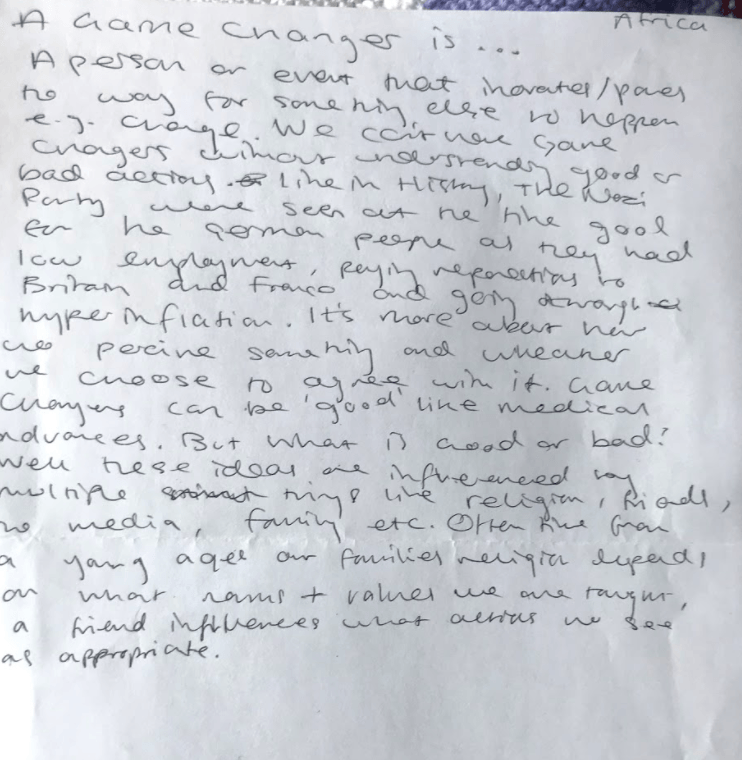 Africa
A Game Changer is...
A person or event that inovates/paves
the way for something else to happen
e.g. change. We can't have Game
Changers without understanding good or
bad actions. Like in History, The Nazi
Party were seen at the time good
for the German people as they had
low employment, paying reparations to
Britain and France and going through
hyperinflation. It's more about how
we percive something and wheather
we choose to agree with it. Game
Changers can be 'good' like medical
advances. But what is Good or bad?
Well these ideas are influenced by
multiple things like religion, friends,
the media, family etc. Often from
a young agee our families religion depends
on what norms + values we are taught,
a friend influences what actions we see
as appropriate.